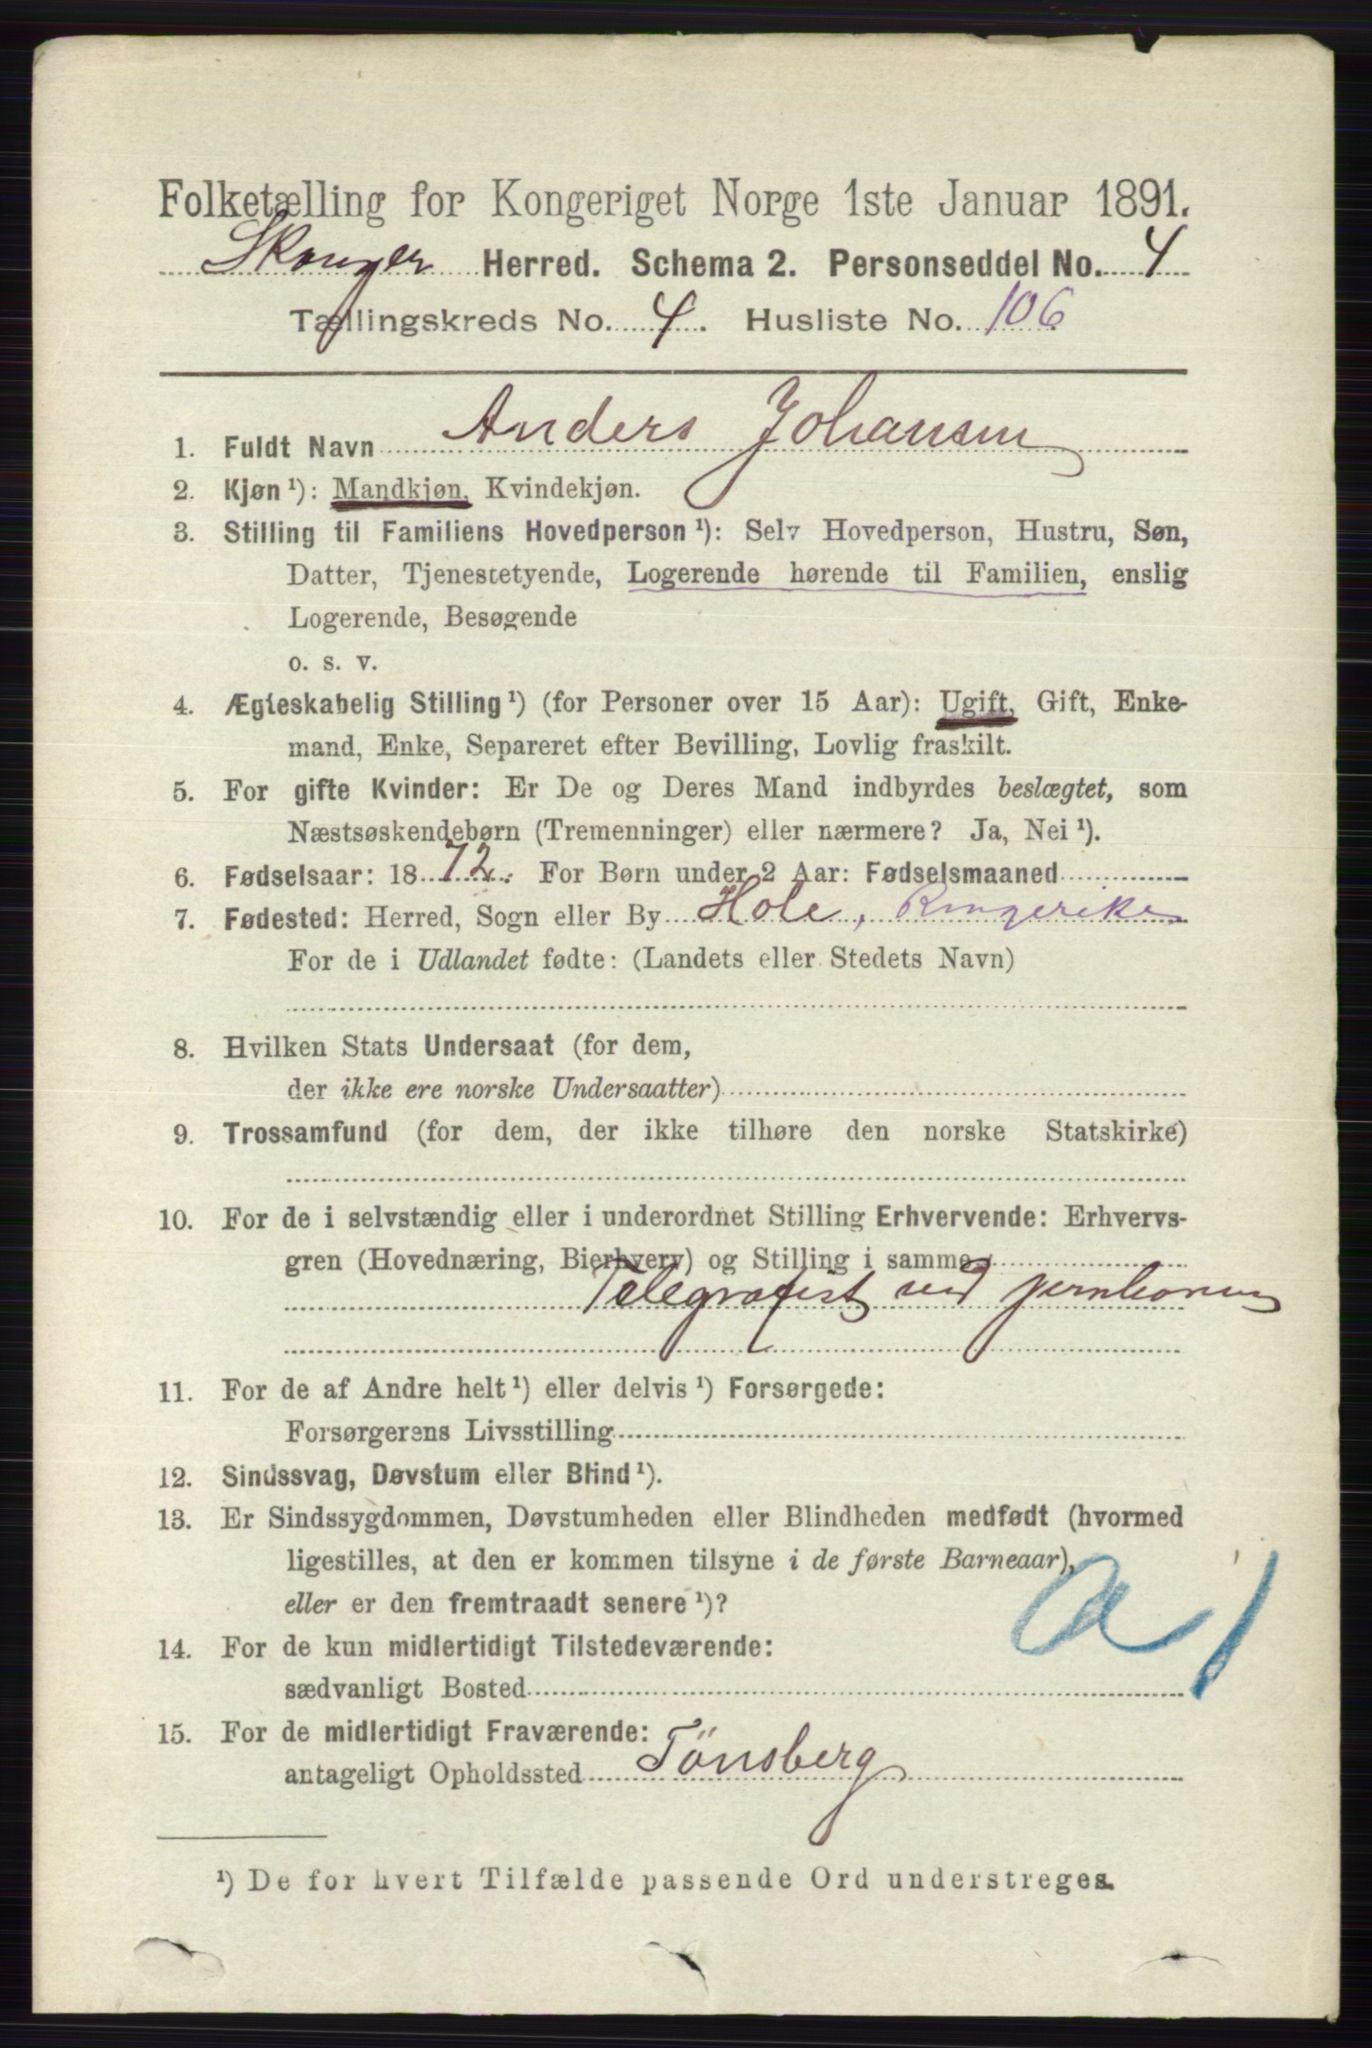 Folketælling for Kongeriget Norge 1ste Januar 1891.
Skouger Herred. Schema 2. Personseddel No. 4
Tællingskreds No. 4. Husliste No. 106
1. Fuldt Navn Anders Johansen
2. Kjøn ¹): Mandkjøn, Kvindekjøn.
3. Stilling til Familiens Hovedperson ¹): Selv Hovedperson, Hustru, Søn,
Datter, Tjenestetyende, Logerende hørende til Familien, enslig
Logerende, Besøgende
o. s. v.
4. Ægteskabelig Stilling ¹) (for Personer over 15 Aar): Ugift, Gift, Enke-
mand, Enke, Separeret efter Bevilling, Lovlig fraskilt.
5. For gifte Kvinder: Er De og Deres Mand indbyrdes beslægtet, som
Næstsøskendebørn (Tremenninger) eller nærmere? Ja, Nei ¹).
6. Fødselsaar: 1872. For Børn under 2 Aar: Fødselsmaaned
7. Fødested: Herred, Sogn eller By Hole, Ringerike
For de i Udlandet fødte: (Landets eller Stedets Navn)
8. Hvilken Stats Undersaat (for dem,
der ikke ere norske Undersaatter)
9. Trossamfund (for dem, der ikke tilhøre den norske Statskirke)
10. For de i selvstændig eller i underordnet Stilling Erhvervende: Erhvervs-
gren (Hovednæring, Bierhverv) og Stilling i samme
Telegrafist ved jernbanen
11. For de af Andre helt ¹) eller delvis ¹) Forsørgede:
Forsørgerens Livsstilling
12. Sindssvag, Døvstum eller Blind ¹).
13. Er Sindssygdommen, Døvstumheden eller Blindheden medfødt (hvormed
ligestilles, at den er kommen tilsyne i de første Barneaar),
eller er den fremtraadt senere ¹)?
a 1
14. For de kun midlertidigt Tilstedeværende:
sædvanligt Bosted
15. For de midlertidigt Fraværende:
antageligt Opholdssted Tönsberg
¹) De for hvert Tilfælde passende Ord understreges.